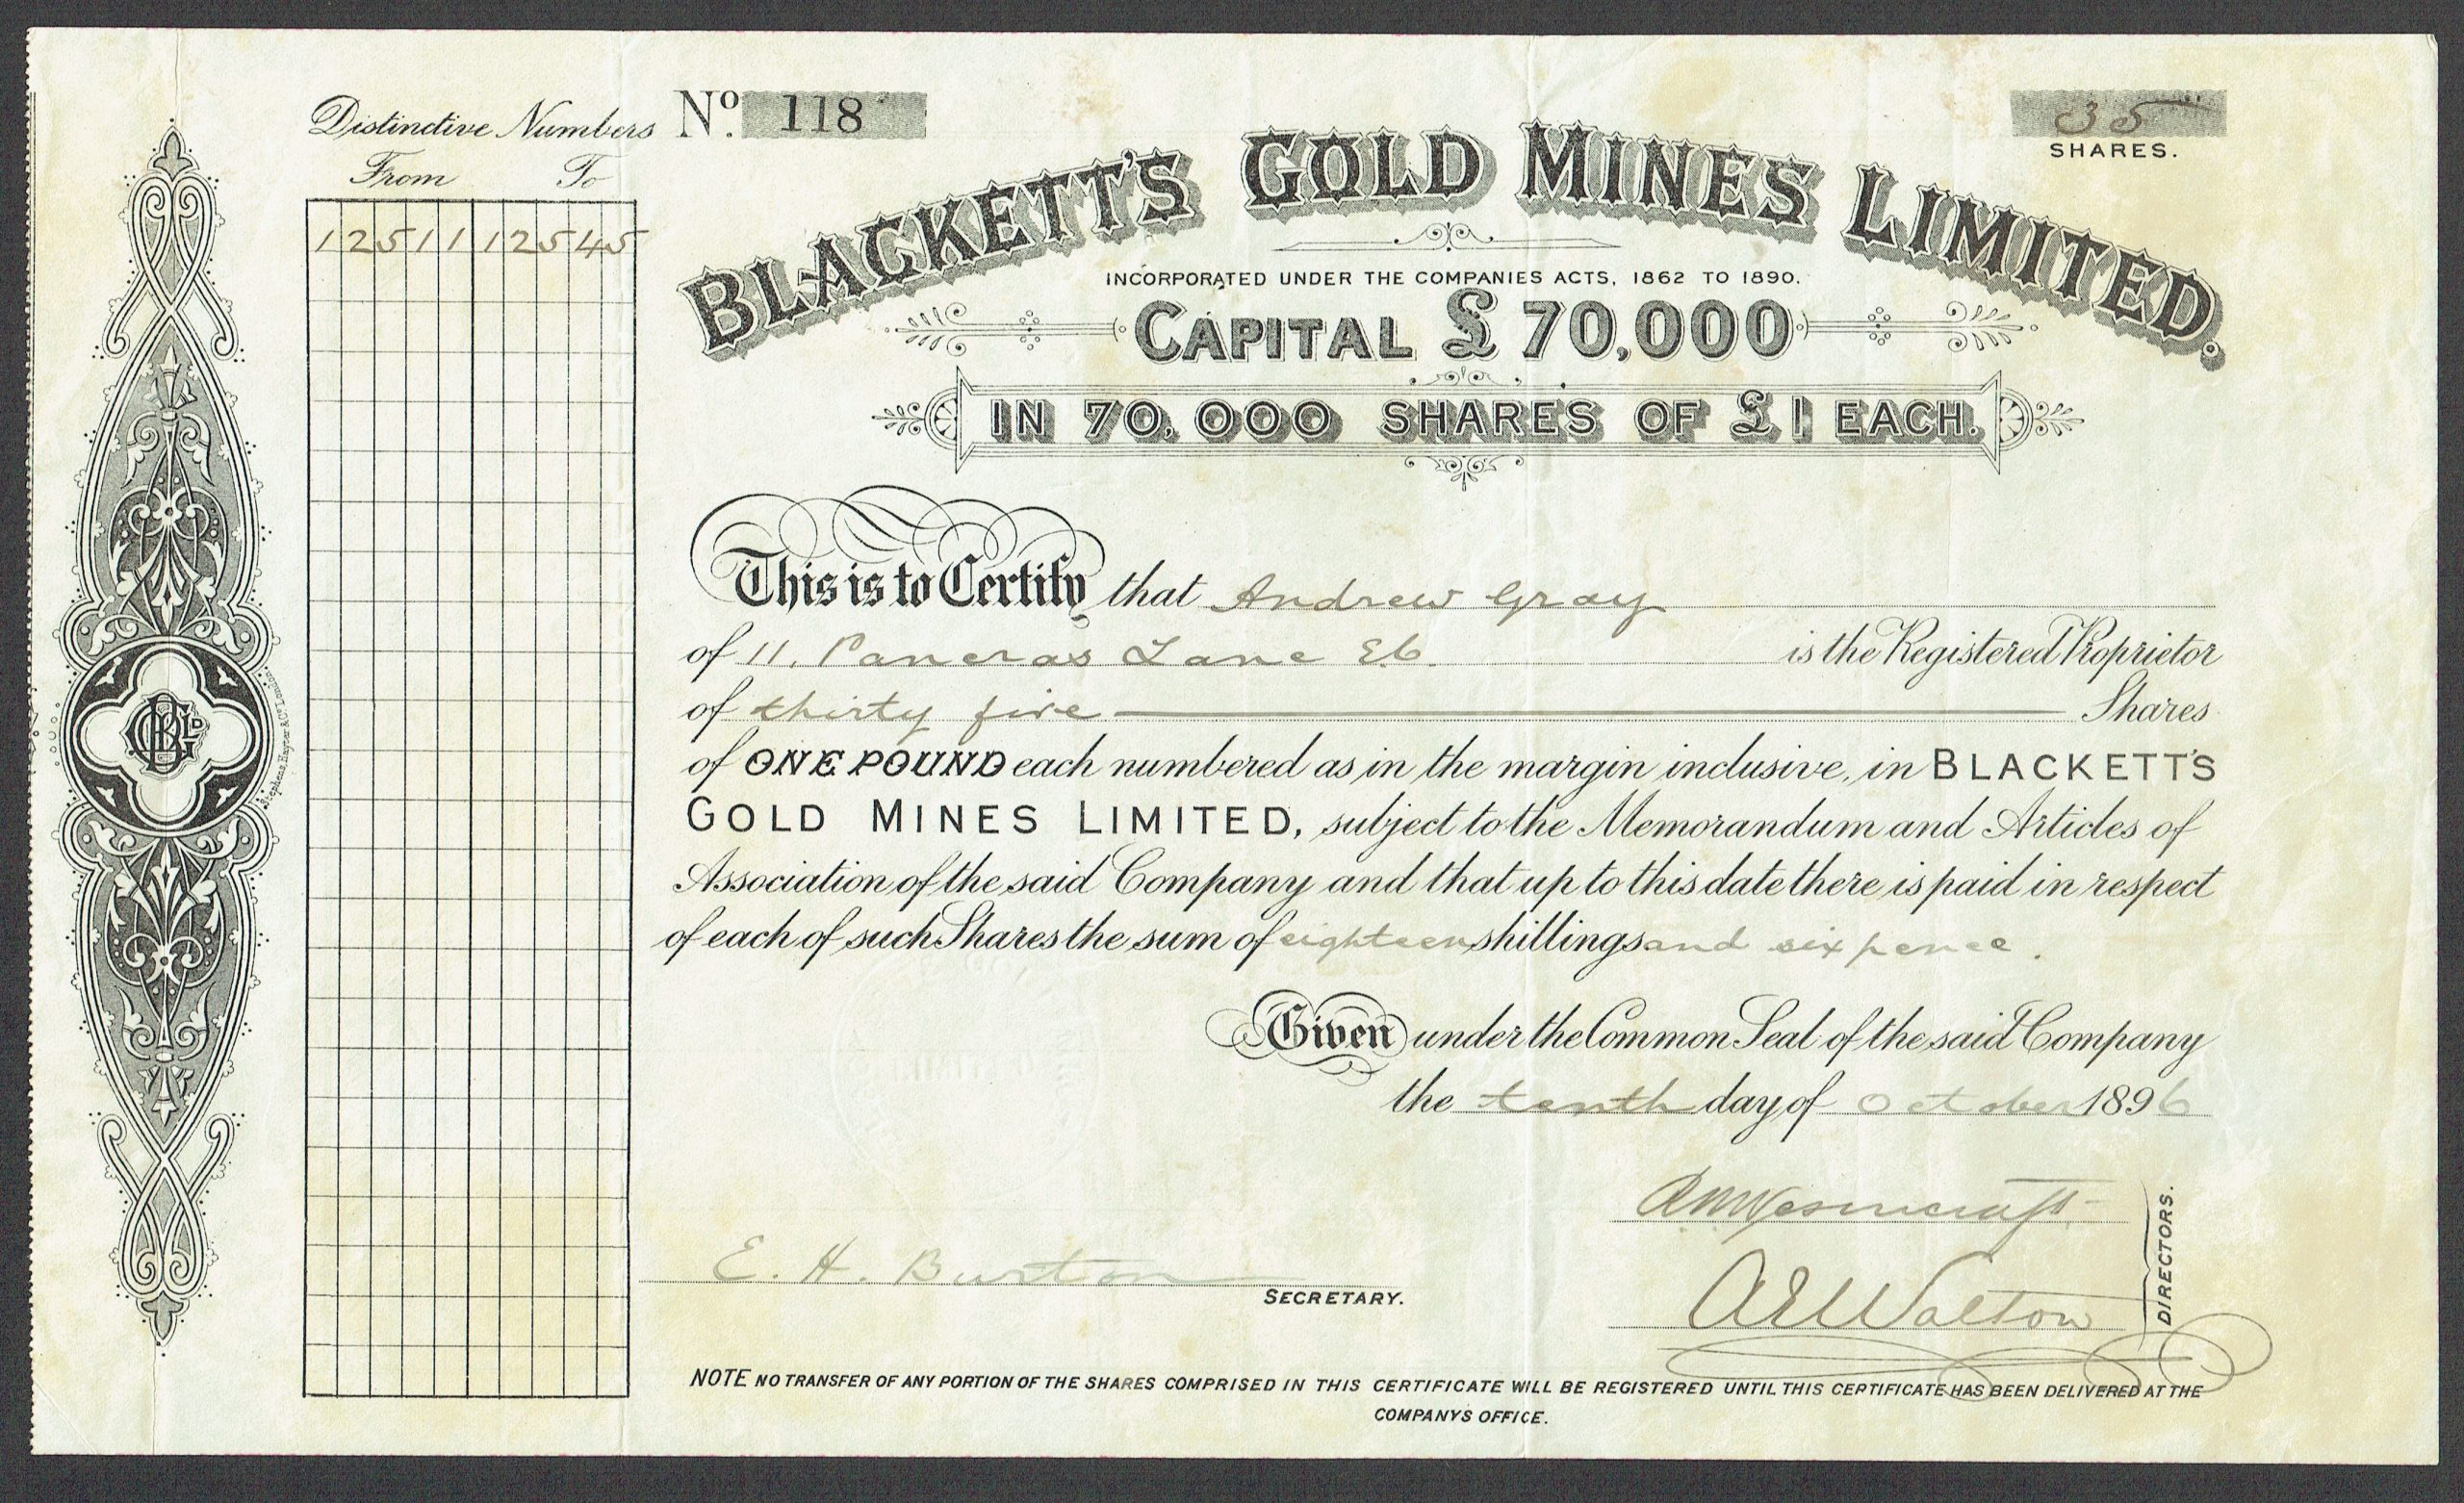 Distinctive Numbers
From To
12511 12545
No. 118
35
SHARES.
BLACKETT'S GOLD MINES LIMITED.
INCORPORATED UNDER THE COMPANIES ACTS, 1862 TO 1890.
CAPITAL £70,000
IN 70,000 SHARES OF £1 EACH.
This is to Certify that Andrew Gray
of 11. Pancras Lane EC. is the Registered Proprietor
of thirty five Shares
of ONE POUND each numbered as in the margin inclusive, in BLACKETT'S
GOLD MINES LIMITED, subject to the Memorandum and Articles of
Association of the said Company and that up to this date there is paid in respect
of each of such Shares the sum of eighteen shillings and six pence.
Given under the Common Seal of the said Company
the tenth day of October 1896
E. H. Burton
SECRETARY.
A E Walton
DIRECTORS.
NOTE NO TRANSFER OF ANY PORTION OF THE SHARES COMPRISED IN THIS CERTIFICATE WILL BE REGISTERED UNTIL THIS CERTIFICATE HAS BEEN DELIVERED AT THE
COMPANYS OFFICE.
Stephens, Hayter & Co. London